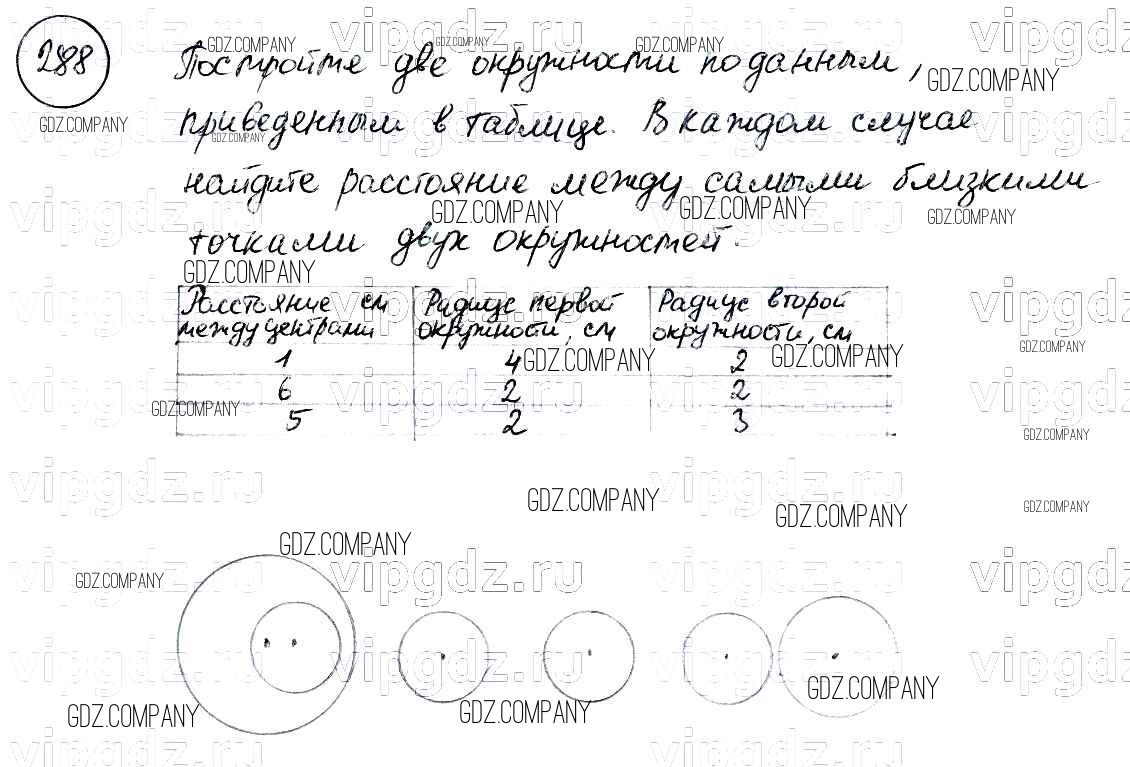 288
Постройте две окружности по данным,
приведенным в таблице. В каждом случае
найдите расстояние между самыми близкими
точками двух окружностей.
Расстояние см между центрами
Радиус первой окружности, см
Радиус второй окружности, см
1 4 2
6 2 2
5 2 3
vipgdz.ru
GDZ.COMPANY